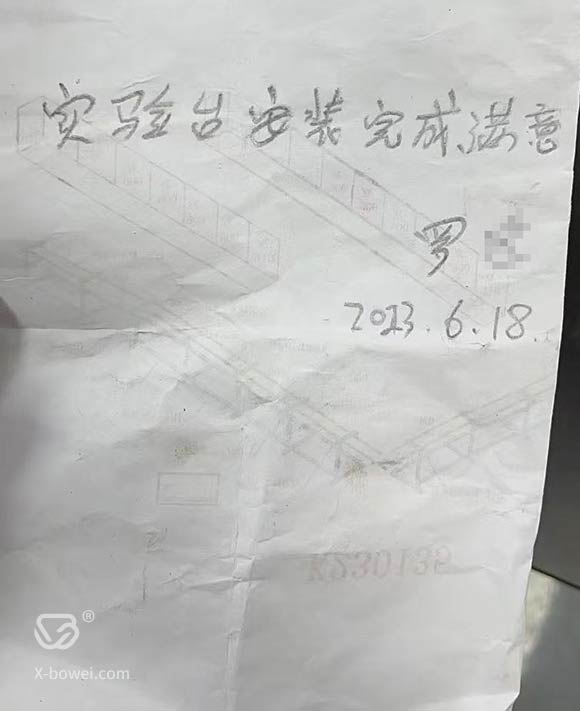 实验台安装完成满意
罗
2023.6.18
KS230139
®
X-bowei.com